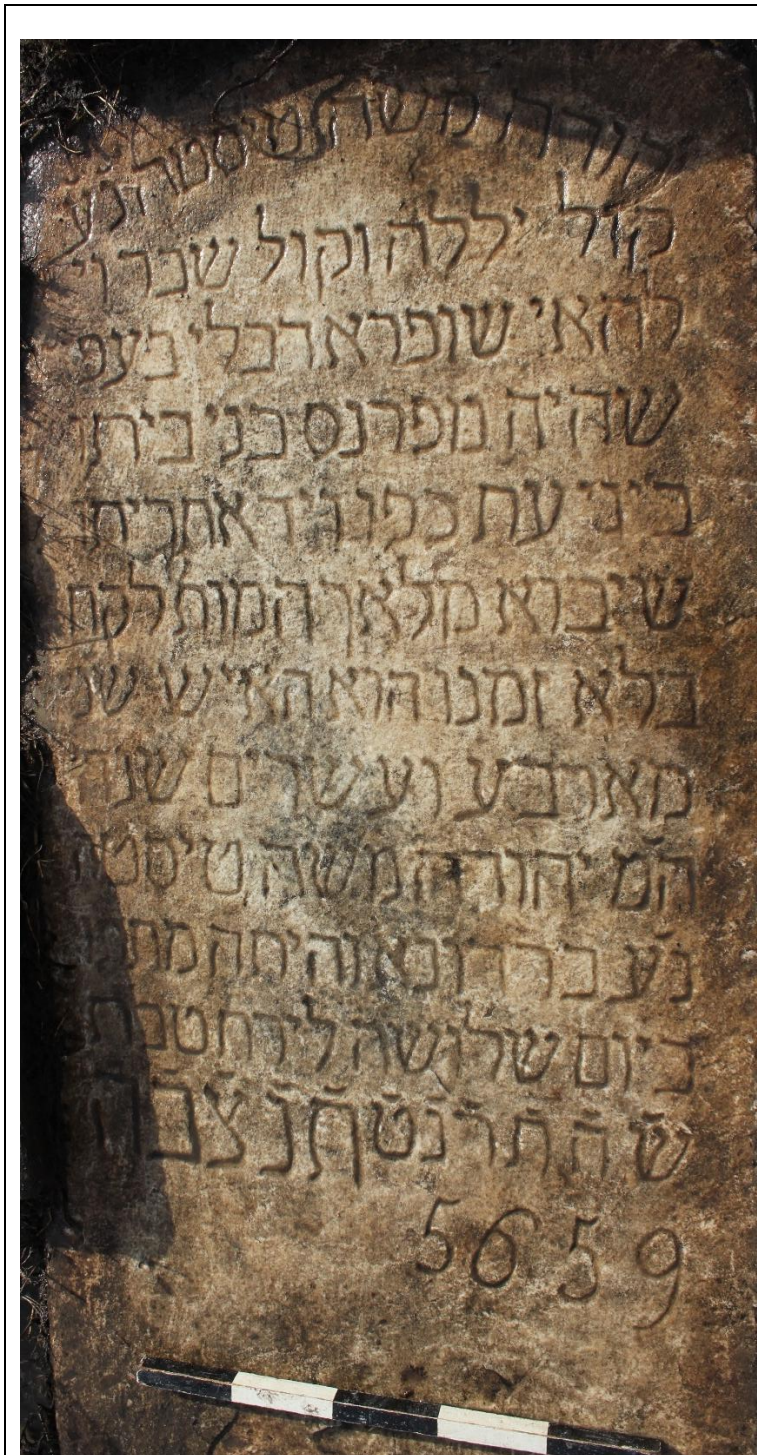 יהודה משה טיסטה נ״ע
קול יללה וקול שבר וי
להאי שופרא דבלי בעפ
שהיה מפרנס בני ביתו
ביני עת כפנו גיד אחריתו
שיבוא מלאך המות לקח
בלא זמנו הוא האיש שנ
מארבע ועשרים שנה
המ׳ יהודה משה טיסטה
נ״ע בר דונא והיתה מתתו
ביום שלושה לירח טבת
ש ה ת ר נ ט ת נ צ ב ה
5659